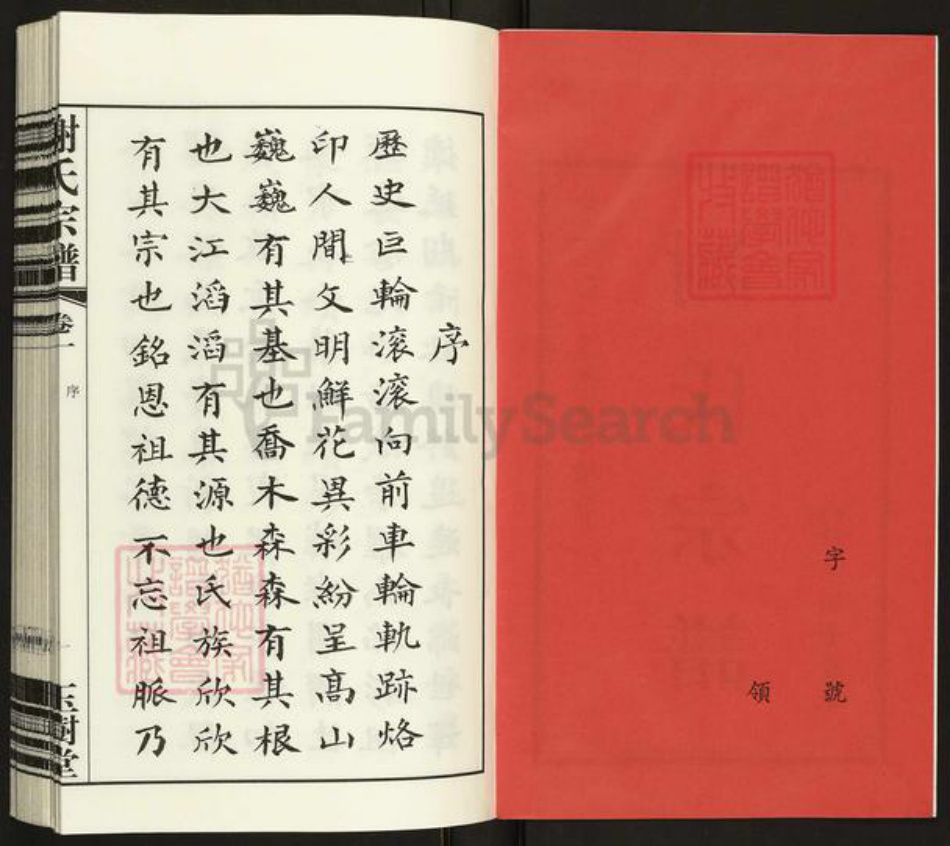 字號
領
序
歷史巨輪滾滾向前車輪軌跡烙
印人間文明鮮花異彩紛呈高山
巍巍有其基也喬木森森有其根
也大江滔滔有其源也氏族欣欣
有其宗也銘恩祖德不忘祖脈乃
謝氏宗譜
卷一
序
一
玉樹堂
FamilySearch